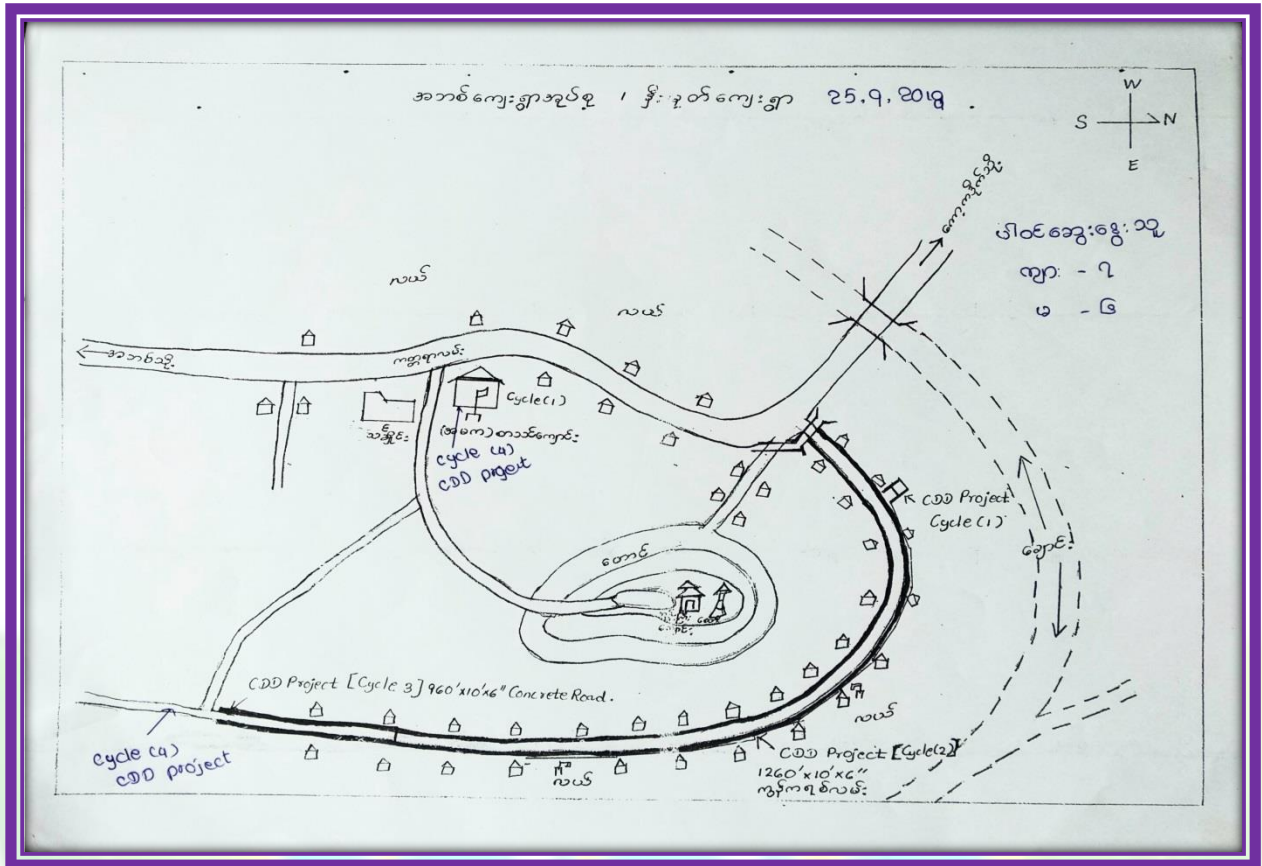 အဘစ်ကျေးရွာအုပ်စု ၊ နှီးခုတ်ကျေးရွာ
W
S N
E
ပါဝင်ဆွေးနွေးသူ
ကျား - ၇
မ - ၆
လယ်
လယ်
အဘစ်သို့
ကတ္တရာလမ်း
Cycle(1)
(အမက) စာသင်ကျောင်း
Cycle (4)
CDD project
CDD Project
Cycle(1)
ချောင်း
တောင်
CDD Project [Cycle 3] 960'x10'x6" Concrete Road.
လယ်
Cycle (4)
CDD project
CDD Project [Cycle(2)]
1260'x10'x6"
ကွန်ကရစ်လမ်း
လယ်